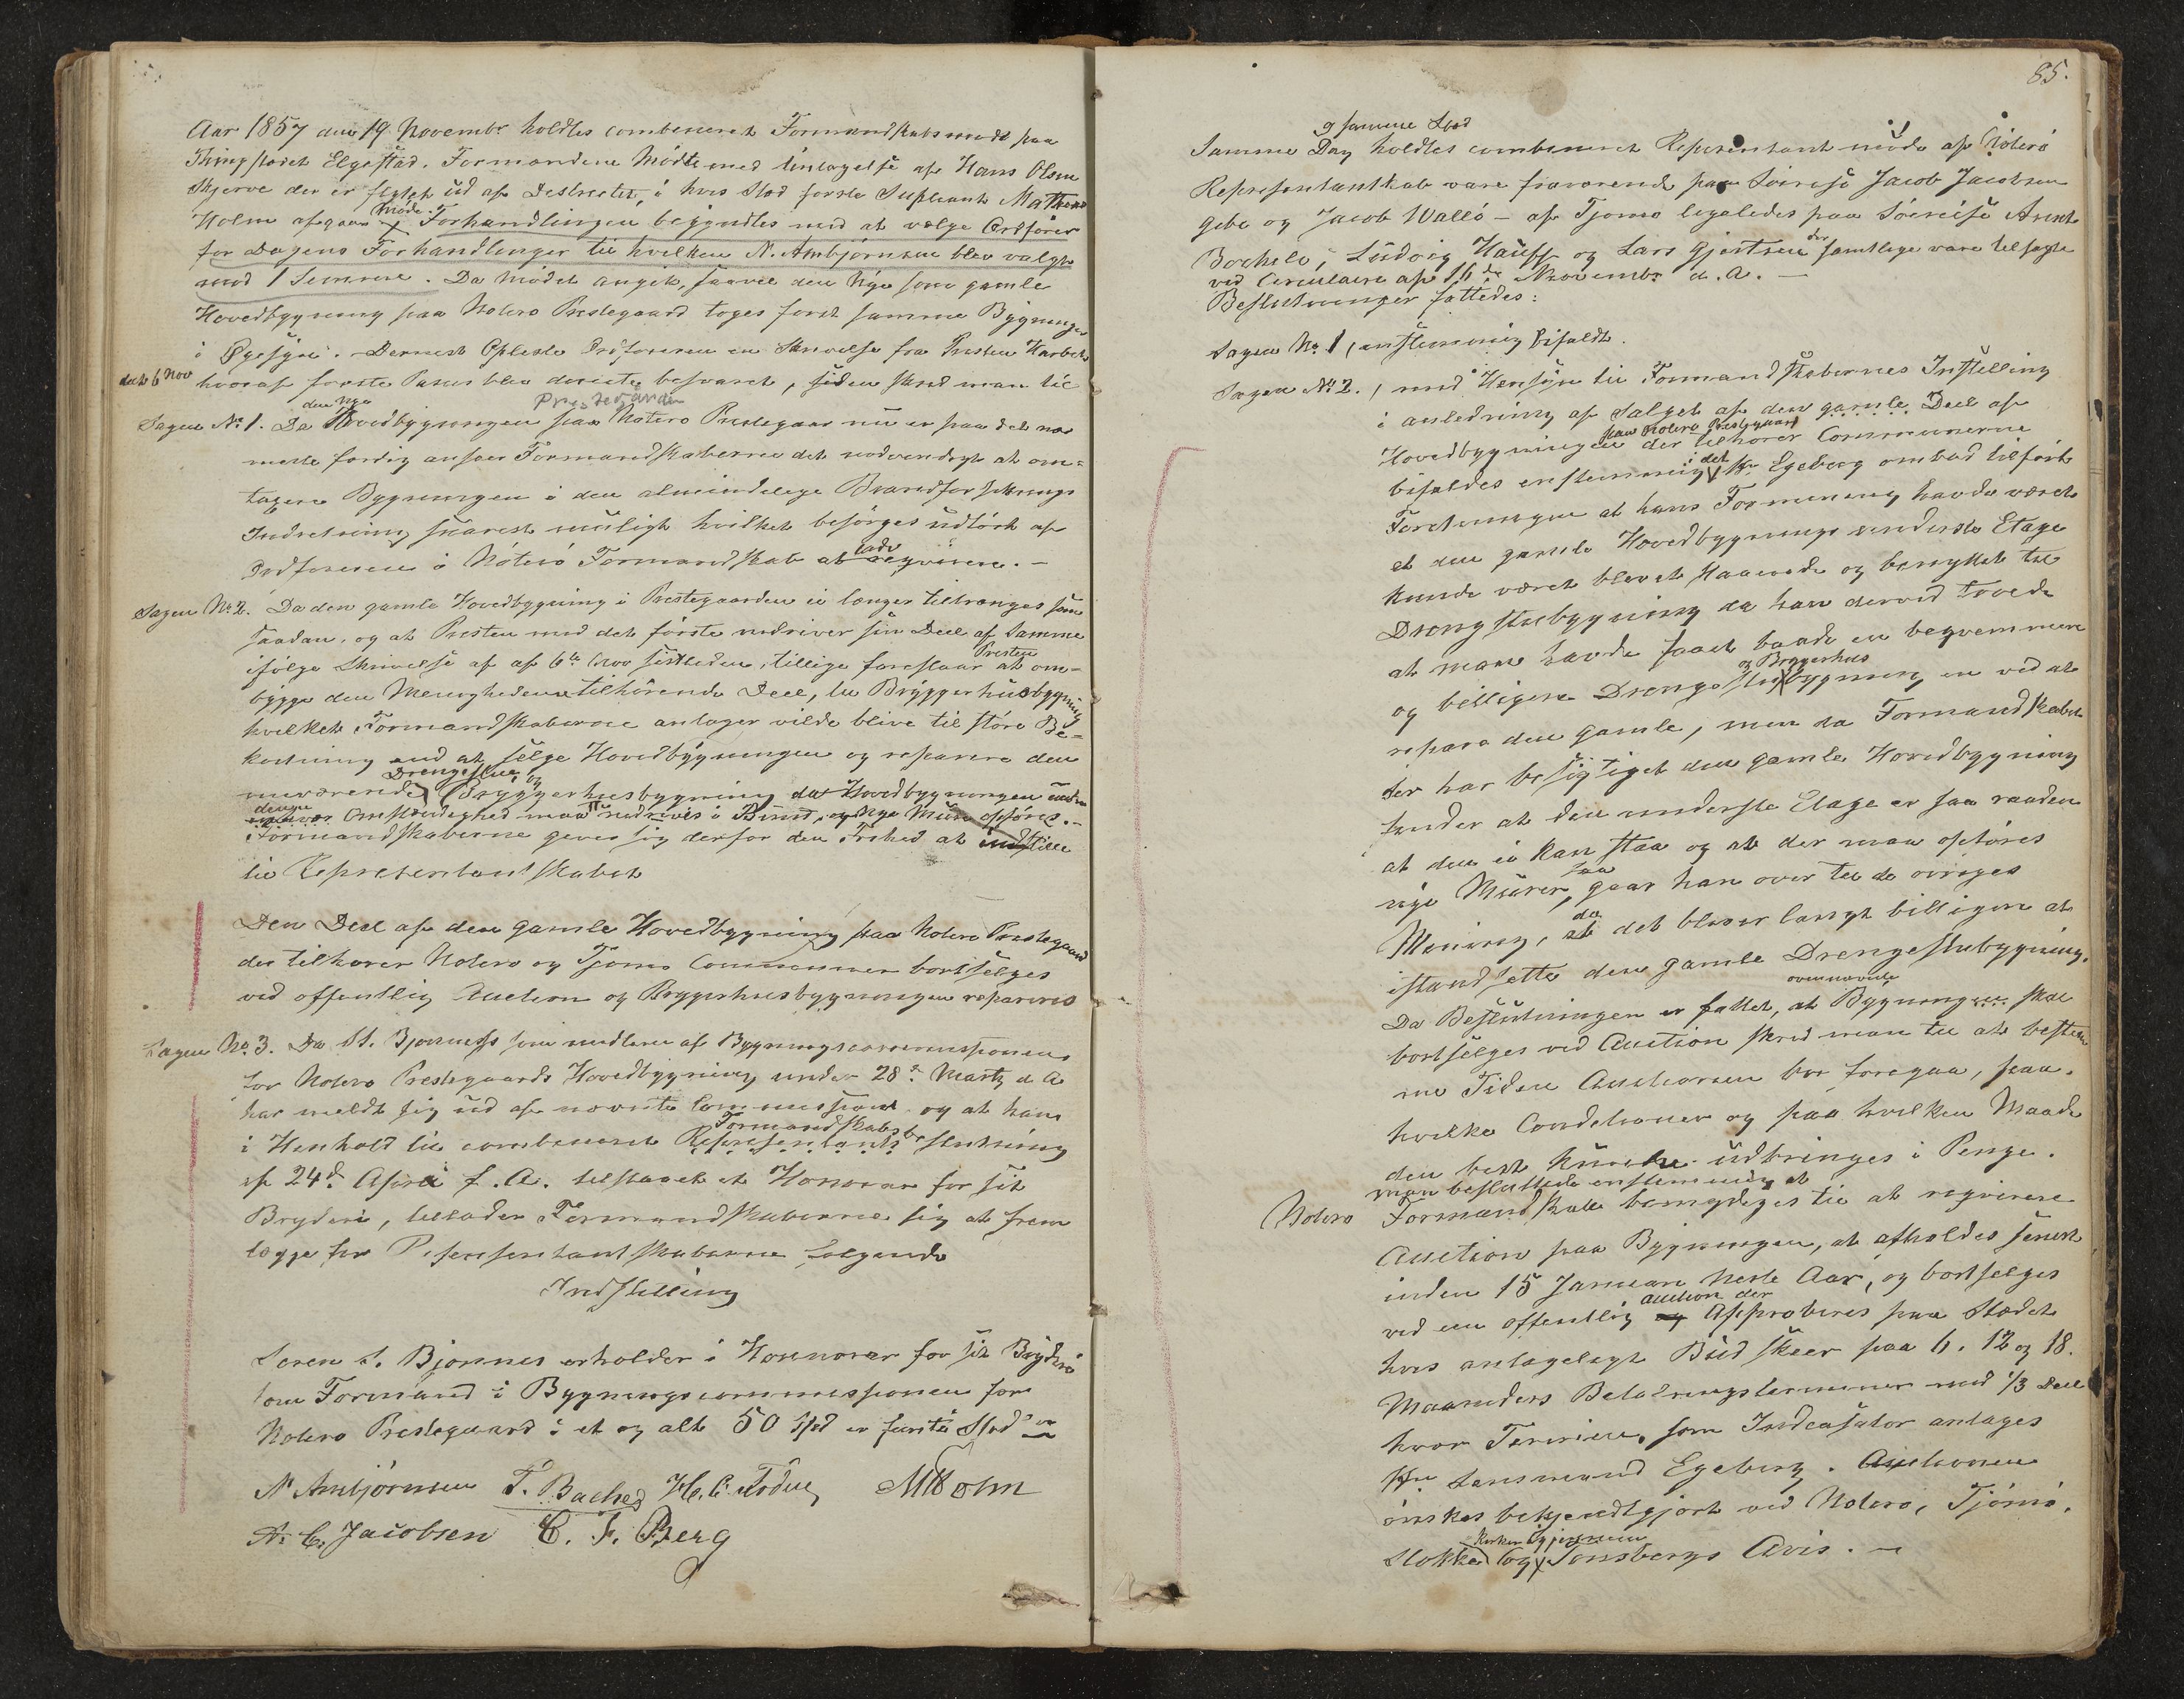 Aar 1857 den 19. Novembr holdtes combineret Formandskabsmøde paa
Thingstedet Elgestad. Formændene Mødte med Undtagelse af Hans Olsen
Skjerve der er flyttet ud af Destrectet, i hvis Sted første Supleant Mathias
Holm afgaar Møde. Forhandlingen begyndtes med at vælge Ordfører
for Dagens Forhandlinger til hvilken N. Ambjørnsen blev valgt
med 1 Stemme. Da Mødet angik, saavel den Nye som gamle
Hovedbygning paa Nøterø Prestegaard toges først samme Bygninger
i Øyesyn. Dernest Opleste Ordføreren en Skrivelse fra Presten Harbek
dat 6 Nov hvoraf første Passus blev derecte besvaret, siden skred man til
Prestegarden
Sagen No 1. Da den nye Hovedbygningen paa Nøterø Prestegaar nu er paa det nær
meste færdig anseer Formandskaberne det nødvendigt at om=
taxere Bygningen i den almindelige Brandforsikrings
Indretning snarest muligt hvilket besørges udført af
Ordføreren i Nøterø Formandskab at lade reqvirere. –
Sagen No 2. Da den gamle Hovedbygning i Prestegaarden ei længer tiltrænges som
saadan, og at Presten med det første nedriver sin Deel af Samme
ifølge Skrivelse af af 6te Nov sistleden, tillige foreslaar Presten at om=
bygge den Menighederne tilhørende Deel, til Bryggerhusbygning
hvilket Formandskaberne antager vilde blive til støre Be=
kostning end at sælge Hovedbygningen og reparere den
nuværende Drengestue og Bryggerhusbygning da Hovedbygningen under
denne Omstændighed maa nedrives i Bund, og Nye Mure opføres. –
Formandskaberne giver sig derfor den Frihed at indstille
til Representantskabet
Den Deel af den gamle Hovedbygning paa Nøterø Prestegaard
der tilhører Nøterø og Tjømø Communer bortsælges
ved offentlig Auction og Bryggerhusbygningen repareres
Sagen No. 3. Da St. Bjønness som medlem af Bygningscommissionen
for Nøterø Prestegaards Hovedbygning under 28de Marts d A
har meldt sig ud af nævnte Commission og at ham
i Henhold til combineret Representants Formandskabs beslutning
af 24de April f. A. tilstaaet et Honorar for sit
Bryderi, tillader Formandskaberne sig at frem
lægge for Representantskaberne følgende
Indstilling
Søren S. Bjønnes erholder i Honnorar for sit Bryderi
som Formand i Bygningscommissionen for
Nøterø Prestegaard i et og alt 50 Spd er femti Spd
N Ambjørnsen T. Bache H. C. Fødue MHolm
A. C. Jacobsen C. F. Berg
85.
Samme Dag og samme Sted holdtes combineret Representant møde af Nøterø
Representantskab vare fraværende paa Søreise Jacob Jacobsen
gebe og Jacob Wallø – af Tjømø ligeledes paa Søreise Arent
Bochele, Ludvig Hauff og Lars Gjertsen der samtlige vare tilsagte
ved Circulaire af 16de Novembr d. A. –
Beslutninger fattedes:
Sagen No 1, enstemmig bifaldt.
Sagen No 2., med Hensyn til Formandskabernes Instelling
i anledning af Salget af den gamle Deel af
Hovedbygningen paa Nøterø Prestegaard der tilhører Communerne
bifaldes enstemmig, i det Hr Egeberg ombad tilført
Forretningen at hans Formening havde været
at den gamle Hovedbygnings underste Etage
kunde været blevet staaende og benyttet til
Drengstuebygning da han derved troede
at man havde faaet baade en beqvemmere
og billigere Drengestue og Bryggerhus bygning en ved at
repara den gamle, men da Formandskabet
der har besigtiget den gamle Hovedbygning
finder at den underste Etage er saa raaden
at den ei kan staa og at der maa opføres
nye Murer, saa gaar han over til de øvriges
Mening, da det bliver langt billigere at
istandsette den gamle Drengestubygning.
Da Beslutningen er fattet, at ovennævnte Bygningen skal
bortsælges ved Auction skred man til at bestem
me Tiden Auctionen bør foregaa, paa
hvilke Conditioner og paa hvilken Maade
den best kunde udbringes i Penge.
man besluttede enstemmig at
Nøterø Formandskab bemyndiges til at reqvirere
Auction paa Bygningen, at afholdes senest
inden 15 Januar Neste Aar, og bortselges
ved en offentlig auction der Approberes paa Stedet
hvis antageligt Bud skeer paa 6. 12 og 18.
Maaneders Betalingsterminer med 1/3 Deel
hver Termin, som Indcasator antages
Hr Lensmand Egeberg. Auctionen
ønskes bekjendtgjort ved Nøterø, Tjømø,
Stokke Kirker og igjennem Tønsbergs Avis. –